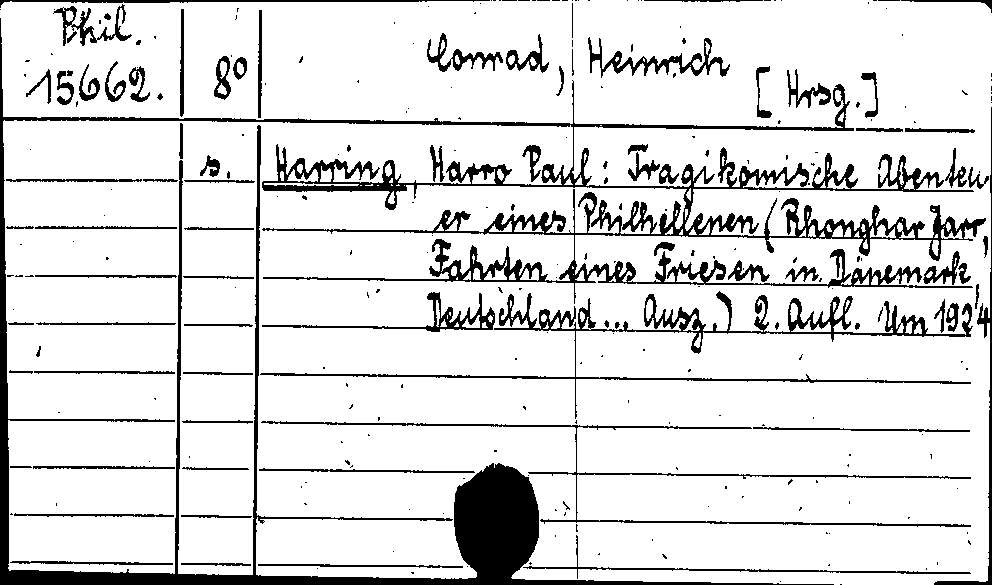 Phil.
15662. 8° Conrad, Heinrich
[Hrsg.]
s. Harring, Harro Paul: Tragikomische Abenteu-
er eines Philhellenen (Rhonghar Jarr,
Fahrten eines Friesen in Dänemark,
Deutschland... Ausz.) 2. Aufl. Um 1924